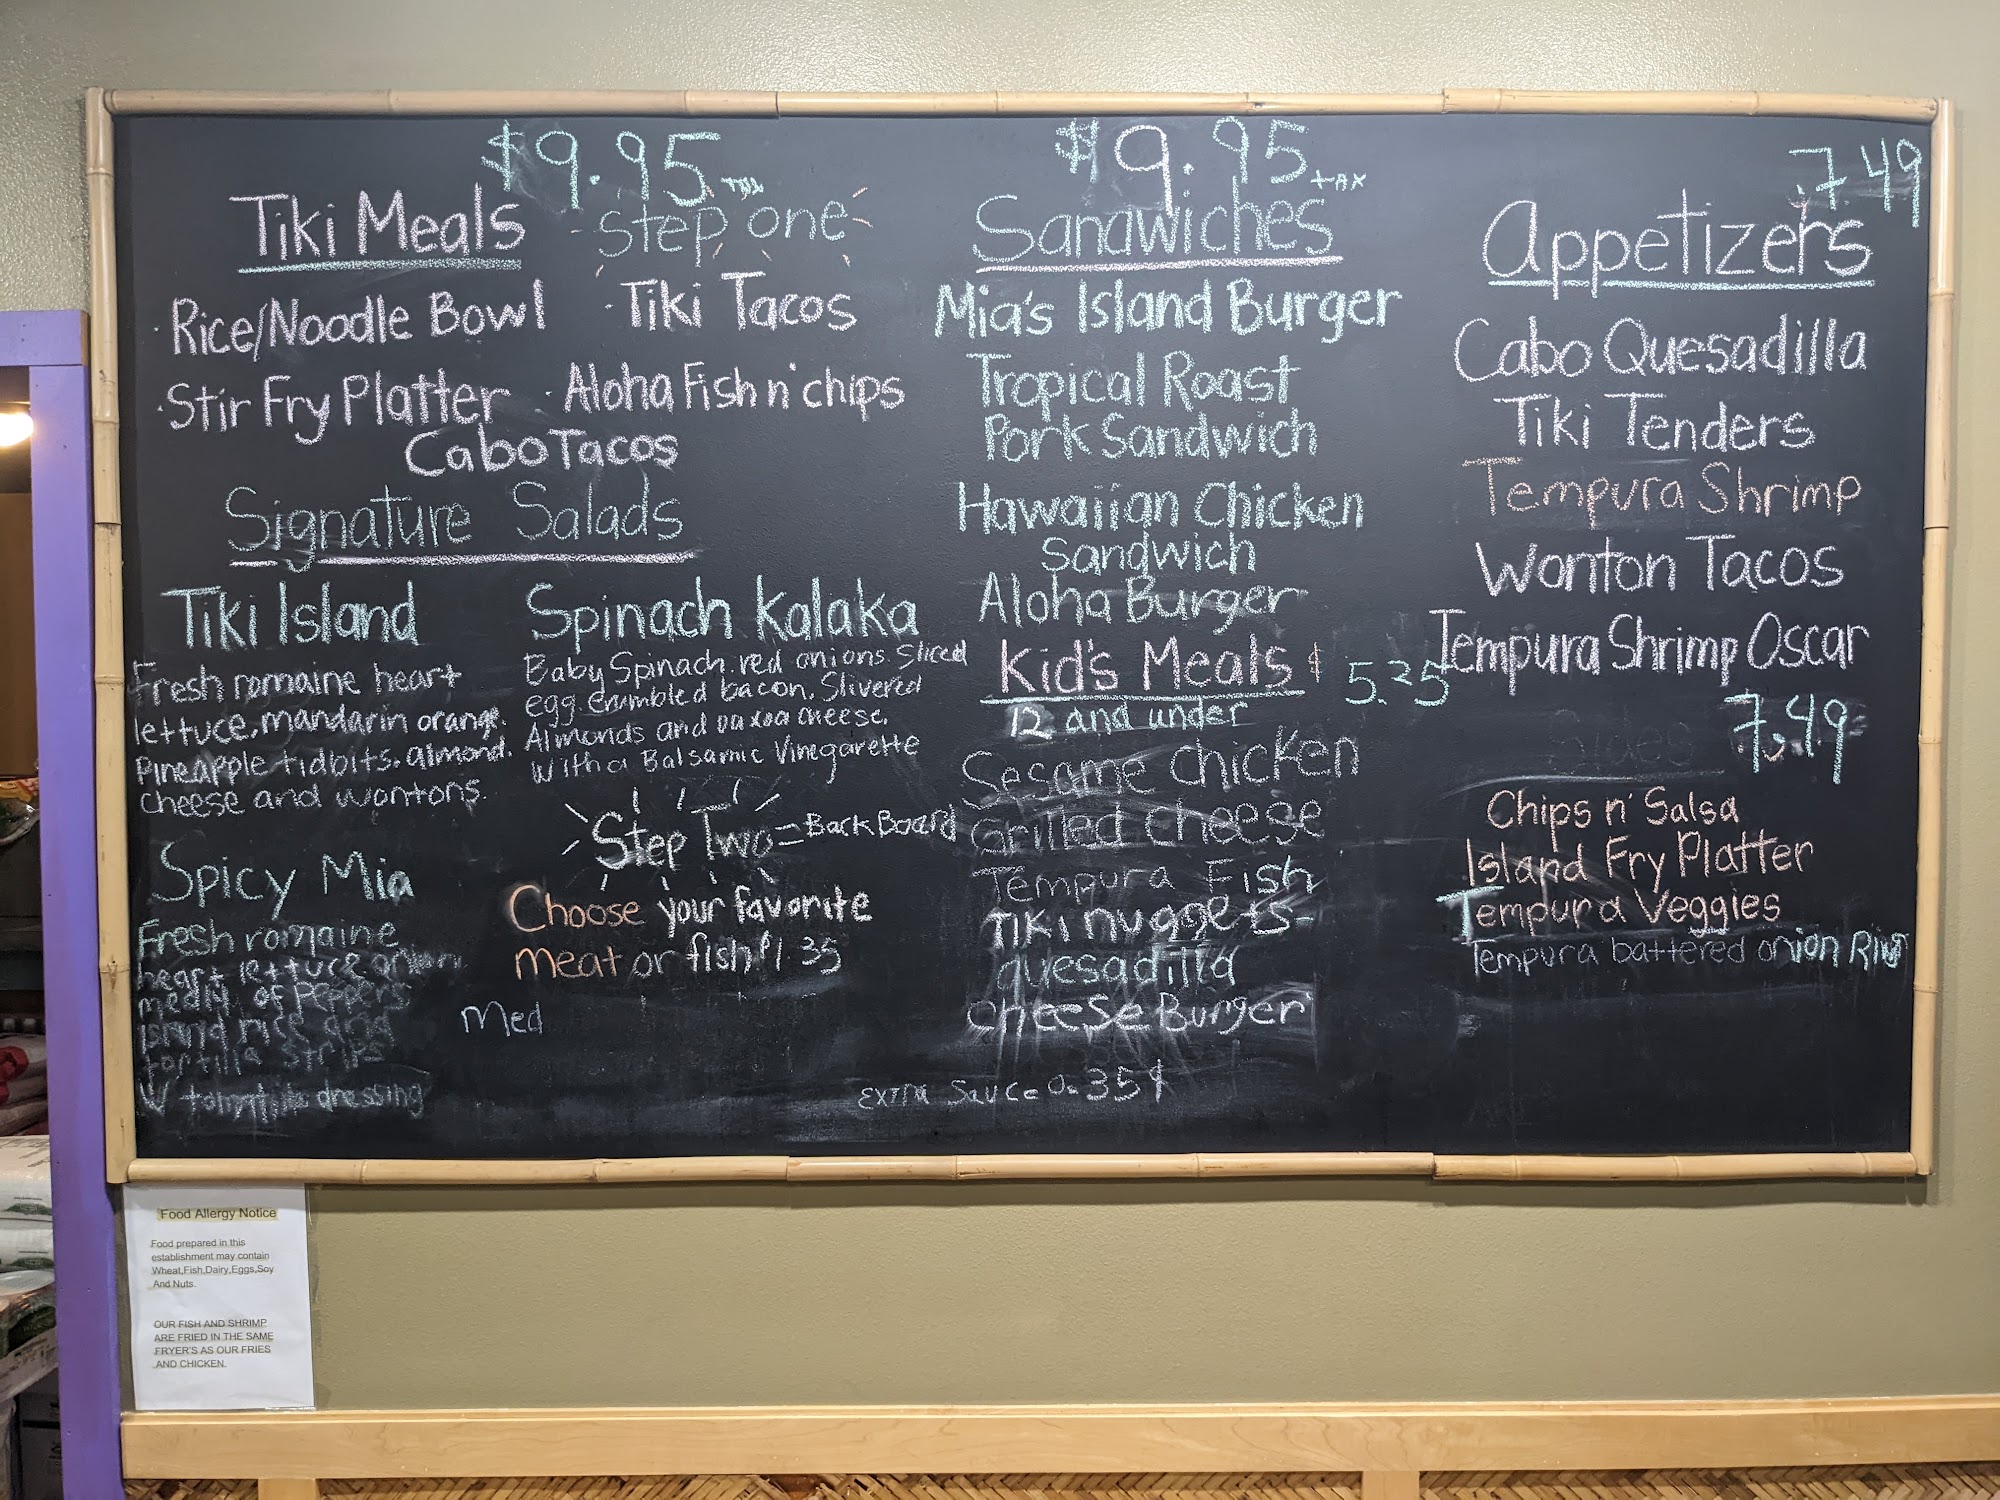 $9.95 tax
Tiki Meals
Step one
Rice/Noodle Bowl
Tiki Tacos
Stir Fry Platter
Aloha Fish n' chips
Cabo Tacos
Signature Salads
Tiki Island
Fresh romaine heart
lettuce, mandarin orange.
pineapple tidbits, almond.
cheese and wontons.
Spinach Kalaka
Baby Spinach, red onions. Sliced
egg. crumbled bacon. Slivered
Almonds and oaxoa cheese.
With a Balsamic Vinegarette
Spicy Mia
Fresh romaine
heart lettuce onion
medly. of peppers
island rice and
tortilla strips
W dressing
Step Two = Back Board
Choose your favorite
meat or fish $1.35
Med
$9.95 +ax
Sandwiches
Mia's Island Burger
Tropical Roast
Pork Sandwich
Hawaiian Chicken
Sandwich
Aloha Burger
Kid's Meals $ 5.25
12 and under
Sesame chicken
Grilled cheese
Tempura Fish
Tiki nuggets
quesadilla
cheese Burger
extra sauce 0.35¢
7.49
Appetizers
Cabo Quesadilla
Tiki Tenders
Tempura Shrimp
Wonton Tacos
Tempura Shrimp Oscar
7.49
Chips n' Salsa
Island Fry Platter
Tempura Veggies
Tempura battered onion
Food Allergy Notice
Food prepared in this
establishment may contain
Wheat,Fish,Dairy,Eggs,Soy
And Nuts.
OUR FISH AND SHRIMP
ARE FRIED IN THE SAME
FRYER'S AS OUR FRIES
AND CHICKEN.